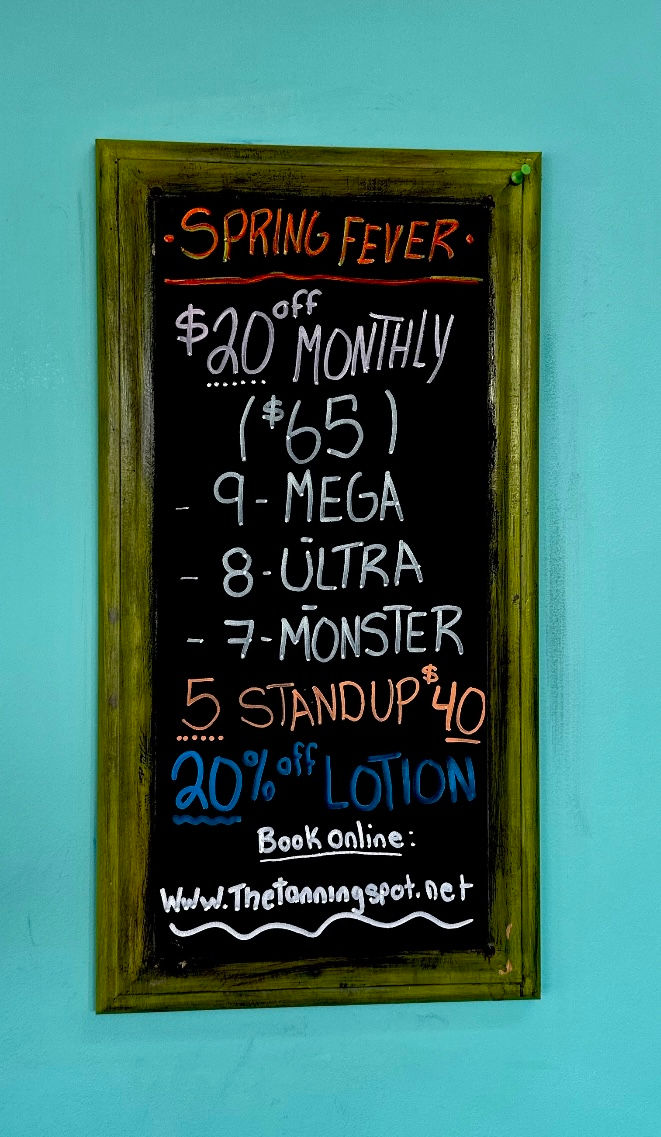 ·SPRING FEVER·
$20 off MONTHLY
($65)
- 9 - MEGA
- 8 - ULTRA
- 7 - MONSTER
5 STANDUP $40
20% off LOTION
Book online:
Www.Thetanningspot.net